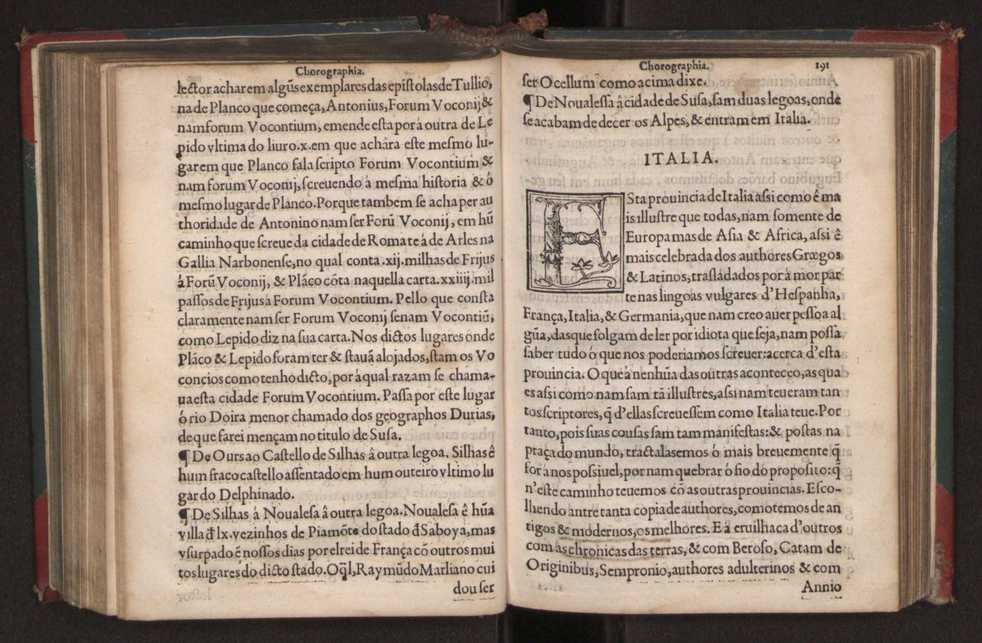 Chorographia.
lector acharem algũs exemplares das epistolas de Tullio,
na de Planco que começa, Antonius, Forum Voconij &
nam forum Vocontium, emende esta por à outra de Le
pido vltima do liuro. x. em que achára este mesmo lu-
gar em que Planco fala scripto Forum Vocontium &
nam forum Voconij, screuendo à mesma historia & ô
mesmo lugar de Planco. Porque tambem se acha per au
thoridade de Antonino nam ser Forũ Voconij, em hũ
caminho que screue da cidade de Roma te à de Arles na
Gallia Narbonense, no qual conta .xij. milhas de Frijus
à Forũ Voconij, & Plãco cõta naquella carta. xxiiij. mil
passos de Frijus à Forum Vocontium. Pello que consta
claramente nam ser Forum Voconij senam Vocontiũ,
como Lepido diz na sua carta. Nos dictos lugares onde
Plãco & Lepido foram ter & stauã alojados, stam os Vo
concios como tenho dicto, por à qual razam se chama-
ua esta cidade Forum Vocontium. Passa por este lugar
ô rio Doira menor chamado dos geographos Durias,
de que farei mençam no titulo de Susa.
¶ De Ours ao Castello de Silhas â outra legoa. Silhas ê
hum fraco castello assentado em hum outeiro vltimo lu
gar do Delphinado.
¶ De Silhas à Noualesa â outra legoa. Noualesa ê hũa
villa đ lx. vezinhos de Piamõte do stado đ Saboya, mas
vsurpado ê nossos dias por el rei de França cõ outros mui
tos lugares do dicto stado. O q̃l, Raymũdo Marliano cui
dou ser
Chorographia. 191
ser Ocellum como acima dixe.
¶ De Noualessa â cidade de Susa, sam duas legoas, onde
se acabam de decer os Alpes, & entram em Italia.
ITALIA.
ESta prouincia de Italia assi como ê ma
is illustre que todas, nam somente de
Europa mas de Asia & Africa, assi ê
mais celebrada dos authores Græegos
& Latinos, trasladados por à mor par
te nas lingoas vulgares d'Hespanha,
França, Italia, & Germania, que nam creo auer pessoa al
gũa, das que folgam de ler por idiota que seja, nam possa
saber tudo ô que nos poderiamos screuer: acerca d'esta
prouincia. O que à nenhũa das outras aconteceo, as qua
es assi como nam sam tã illustres, assi nam teueram tan
tos scriptores, q̃ d'ellas screuessem como Italia teue. Por
tanto, pois suas cousas sam tam manifestas: & postas na
praça do mundo, tractalasemos ô mais breuemente q̃
for à nos possiuel, por nam quebrar ô fio do proposito: q̃
n'este caminho teuemos cõ as outras prouincias. Esco-
lhendo antre tanta copia de authores, como temos de an
tigos & modernos, os melhores. E à eruilhaca d'outros
com as chronicas das terras, & com Beroso, Catam de
Originibus, Sempronio, authores adulterinos & com
Annio